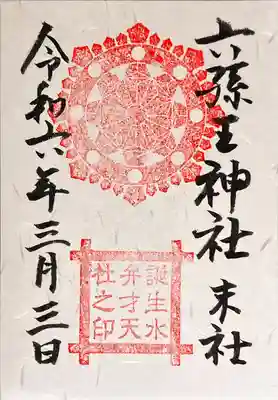 六孫王神社 末社
誕生水
弁才天
社之印
令和六年三月三日